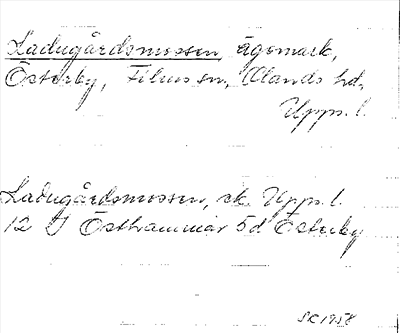 Ladugårdsmossen, ägomark,
Österby, Films sn, Olands hd,
Upps. l.
Ladugårdsmossen, ek. Upps. l.
12 I Östhammar 5d Österby
SK 1958